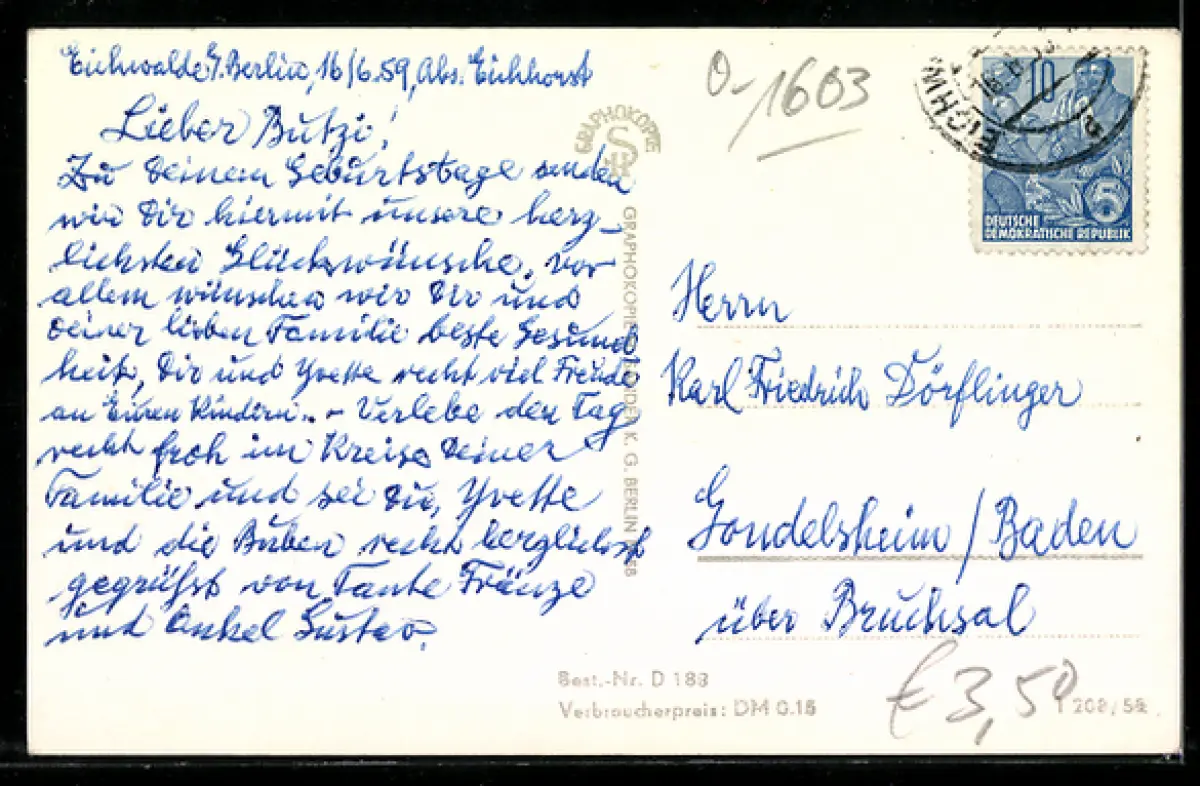 Eichwalde b/Berlin, 16/6.59, Abs. Eichhorst
Lieber Butzi!
Zu Deinem Geburtstage senden
wir Dir hiermit unsere herz-
lichsten Glückwünsche, vor
allem wünschen wir Dir und
Deiner lieben Familie beste Gesund
heit, Dir und Yvette recht viel Freude
an Euren Kindern. - Verlebe den Tag
recht froh im Kreise Deiner
Familie und sei Du, Yvette
und die Buben recht herzlichst
gegrüßt von Tante Fränze
und Onkel Gustav.
GRAPHOKOPIE
GRAPHOKOPIE K. G. BERLIN
0-1603
EICHW
10
5
DEUTSCHE
DEMOKRATISCHE REPUBLIK
Herrn
Karl Friedrich Dörflinger
Gondelsheim / Baden
über Bruchsal
Best.-Nr. D 188
Verbraucherpreis: DM 0.15
€ 3,50